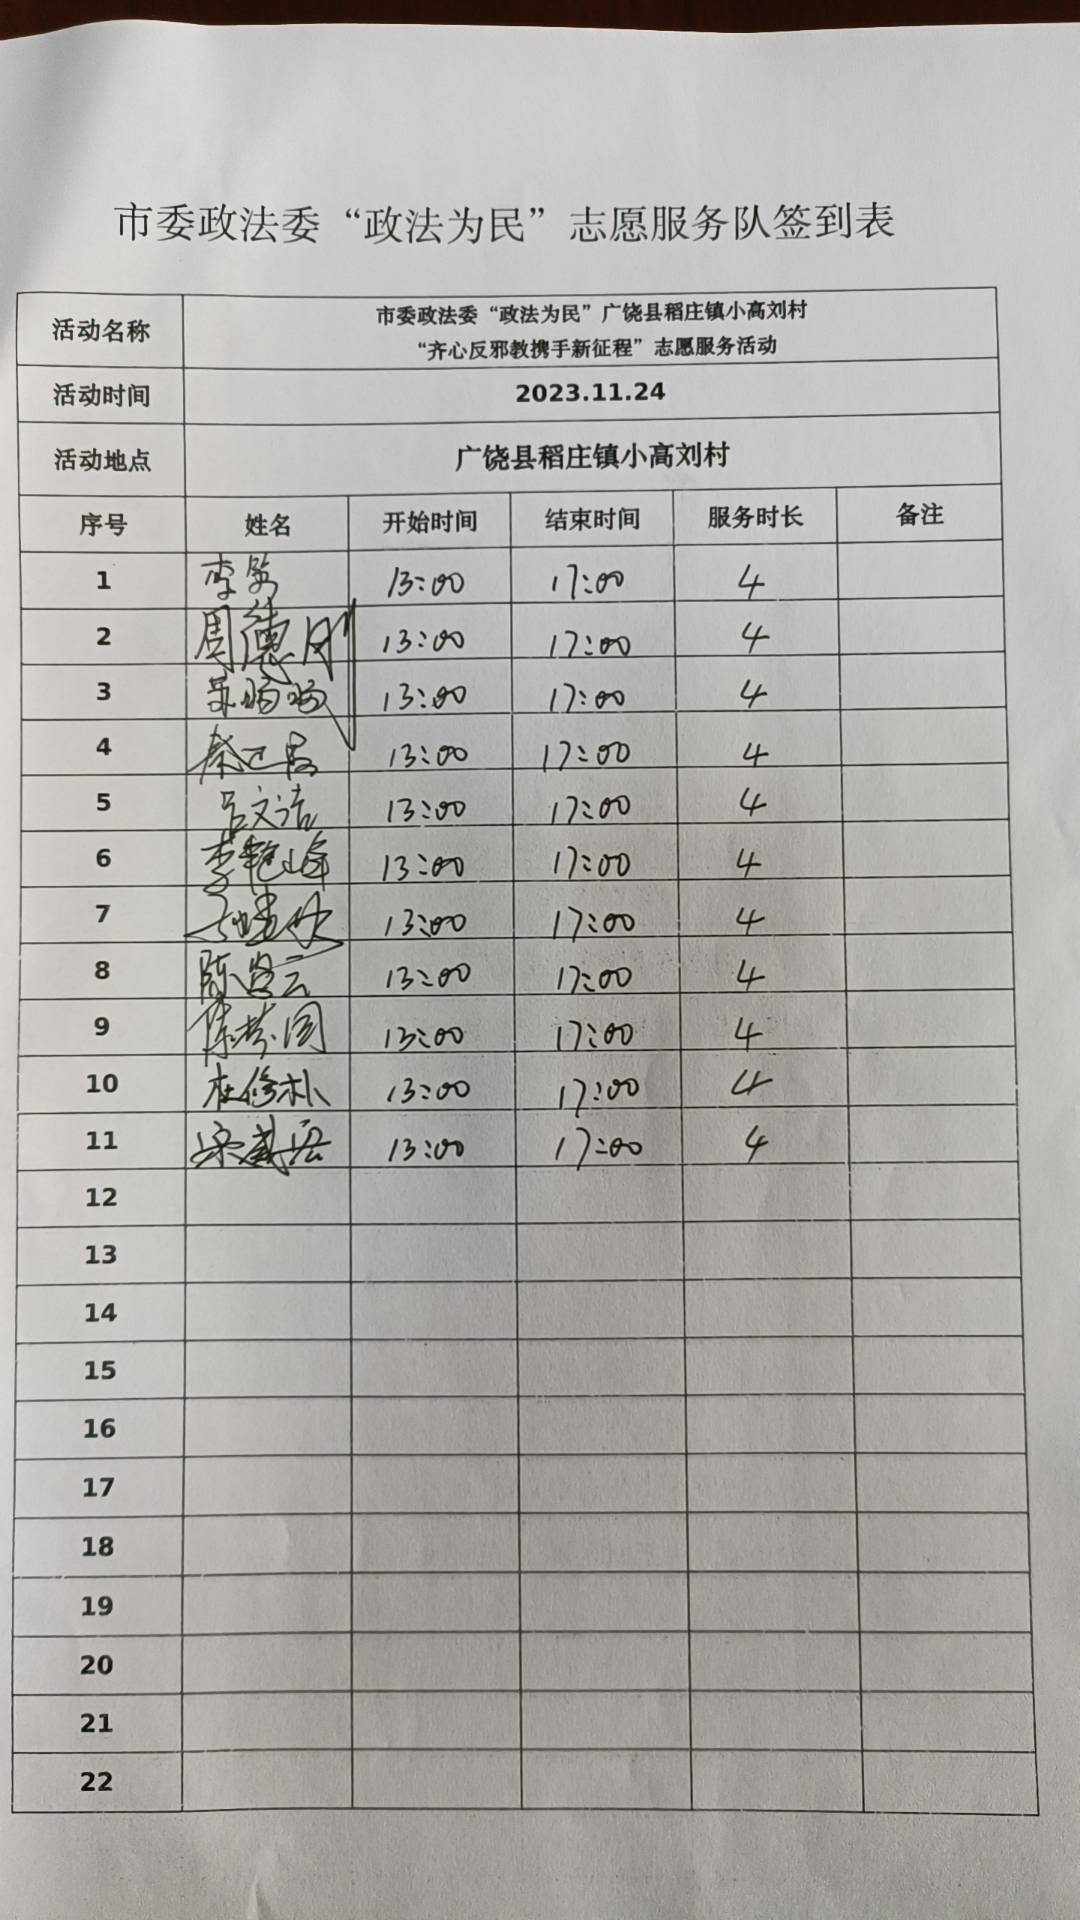 市委政法委“政法为民”志愿服务队签到表
活动名称 市委政法委“政法为民”广饶县稻庄镇小高刘村
“齐心反邪教携手新征程”志愿服务活动
活动时间 2023.11.24
活动地点 广饶县稻庄镇小高刘村
序号 姓名 开始时间 结束时间 服务时长 备注
1 李 13:00 17:00 4
2 周德刚 13:00 17:00 4
3 13:00 17:00 4
4 13:00 17:00 4
5 吕文洁 13:00 17:00 4
6 李艳峰 13:00 17:00 4
7 13:00 17:00 4
8 陈 云 13:00 17:00 4
9 陈 13:00 17:00 4
10 杜修朴 13:00 17:00 4
11 13:00 17:00 4
12
13
14
15
16
17
18
19
20
21
22